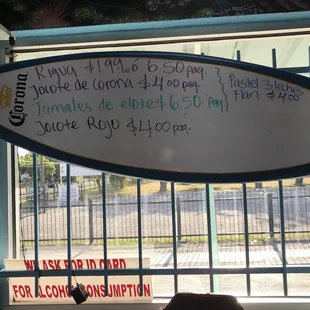 Corona
Rigua $1.99 ó 6.50 paq.
Jocote de Corona $4.00 paq.
Tamales de elote $6.50 paq
Jocote Rojo $4.00 paq.
Pastel 3 leches
Flan $4.00
WE ASK FOR ID CARD
FOR ALCOHOL CONSUMPTION